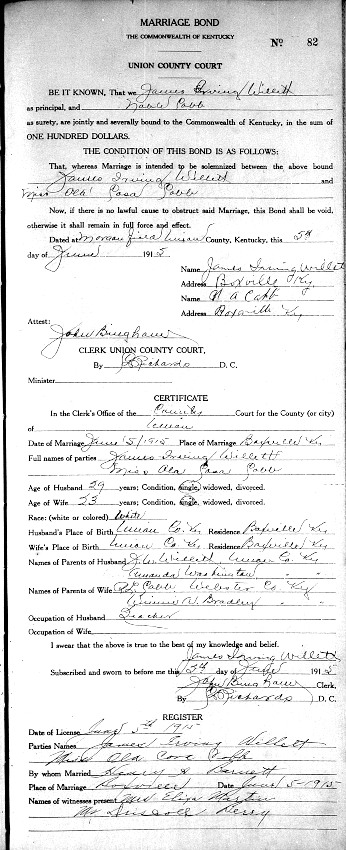 MARRIAGE BOND
THE COMMONWEALTH OF KENTUCKY
No 82
UNION COUNTY COURT
BE IT KNOWN, That we James Irving Willett
as principal, and Cobb
as surety, are jointly and severally bound to the Commonwealth of Kentucky, in the sum of
ONE HUNDRED DOLLARS.
THE CONDITION OF THIS BOND IS AS FOLLOWS:
That, whereas Marriage is intended to be solemnized between the above bound
James Irving Willett and
Miss Ola Cobb
Now, if there is no lawful cause to obstruct said Marriage, this Bond shall be void,
otherwise it shall remain in full force and effect.
Dated at Morganfield Union County, Kentucky, this 5th
day of June 1915
Name James Irving Willett
Address Boxville Ky
Name N A Cobb
Address Boxville Ky
Attest:
John Bingham
CLERK UNION COUNTY COURT,
By Richards D. C.
Minister
CERTIFICATE
In the Clerk's Office of the County Court for the County (or city)
of Union
Date of Marriage June 5/1915 Place of Marriage Boxville Ky
Full names of parties James Irving Willett
Miss Ola Cobb
Age of Husband 29 years; Condition, single, widowed, divorced.
Age of Wife 23 years; Condition, single, widowed, divorced.
Race: (white or colored) White
Husband's Place of Birth Union Co. Ky Residence Boxville Ky
Wife's Place of Birth Union Co. Ky Residence Boxville Ky
Names of Parents of Husband Willett Union Co. Ky
Amanda Washington " "
Names of Parents of Wife Cobb Webster Co. Ky
Minnie V. Bradley " "
Occupation of Husband Teacher
Occupation of Wife
I swear that the above is true to the best of my knowledge and belief.
James Irving Willett
Subscribed and sworn to before me this 5th day of June 1915
John Bingham Clerk,
By Richards D. C.
REGISTER
Date of License June 5th 1915
Parties Names James Irving Willett
Miss Ola Cobb
By whom Married Henry S. Bennett
Place of Marriage Boxville Date June 5-1915
Names of witnesses present Mrs Eliza Martin
Mr Driscoll Berry